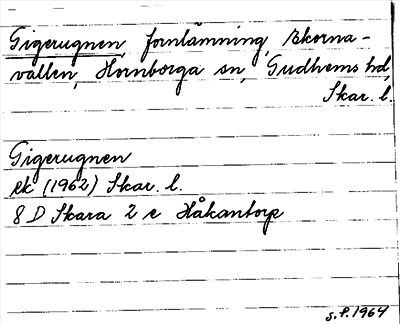 Gigerugnen, fornlämning, Ekorna-
vallen, Hornborga sn, Gudhems hd,
Skar. l.
Gigerugnen
ek (1962) Skar. l.
8 D Skara 2 e Håkantorp
S.F. 1964